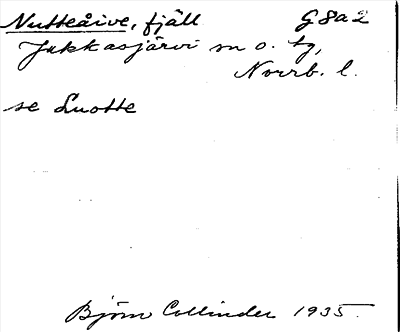 Nutteåive, fjäll G8a2
Jukkasjärvi sn o. tg,
Norrb. l.
se Luotte
Björn Collinder 1935.